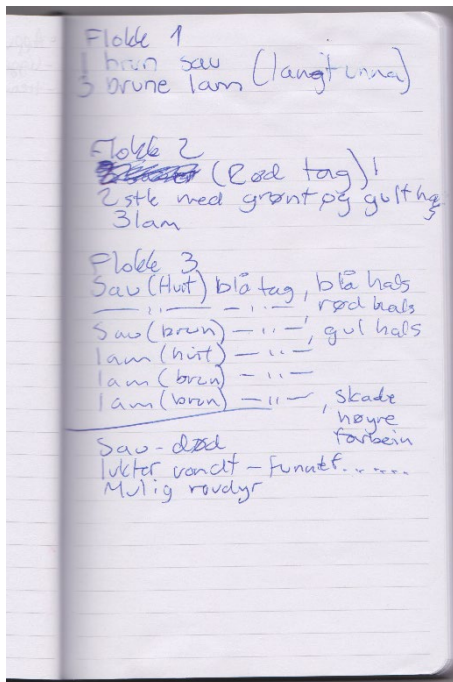 Flokk 1
1 brun sau
3 brune lam (langt unna)
Flokk 2
(Rød tag)!
2 stk med grønt og gult ha
3 lam
Flokk 3
Sau (Hvit) blå tag, blå hals
— ,, —, rød hals
Sau (brun) — ,, —, gul hals
lam (hvit) — ,, —
lam (brun) — ,, —
lam (brun) — ,, —, skade
høyre
forbein
Sau - død
lukter vondt - Funnet......
Mulig rovdyr